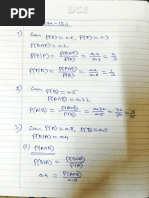 DSE
Ex - 13.1
1) Given P(E) = 0.6, P(F) = 0.3
P(E∩F) = 0.2
P(E/F) = P(E∩F)/P(F) = 0.2/0.3 = 2/3
P(F/E) = P(E∩F)/P(E) = 0.2/0.6 = 1/3
2) P(B) = 0.5
P(A∩B) = 0.32
P(A/B) = P(A∩B)/P(B) = 0.32/0.5 = 32/50 = 16/25
3) Given P(A) = 0.8, P(B) = 0.5
P(B/A) = 0.4
(i) P(A∩B)
P(B/A) = P(A∩B)/P(A)
0.4 = P(A∩B)/0.8